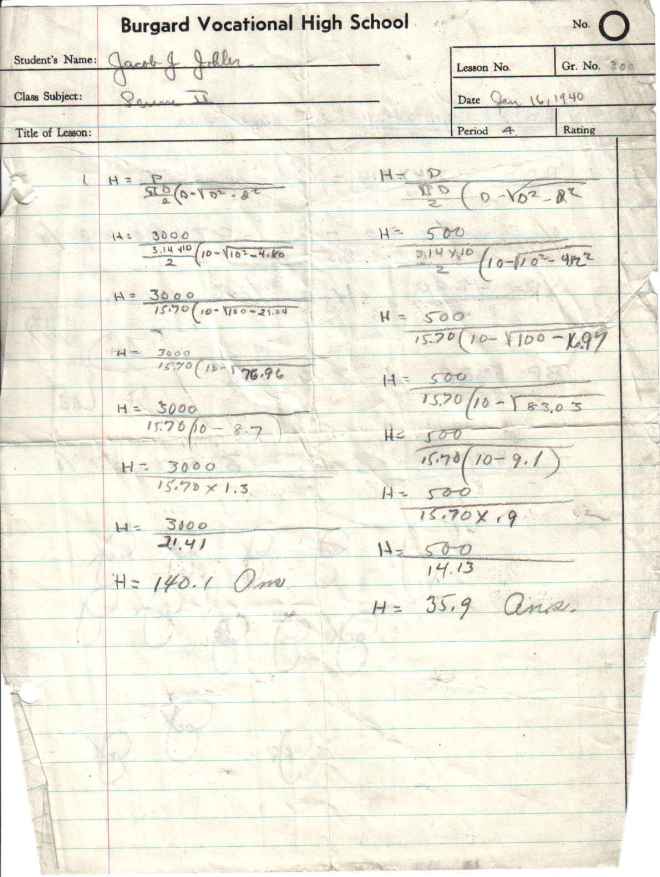 Burgard Vocational High School
No.
Student's Name: Jacob J
Lesson No.
Gr. No. 300
Class Subject:
Date Jan 16, 1940
Title of Lesson:
Period 4
Rating
1. H = P
πD/2 (D-√D²-d²
H = 3000
3.14x10/2 (10-√10²-4.60
H = 3000
15.70(10-√100-21.04
H = 3000
15.70(10-√76.96
H = 3000
15.70(10 - 8.7)
H = 3000
15.70 x 1.3
H = 3000
21.41
H = 140.1 Ans
H = P
πD/2 (D-√D²-d²
H = 500
3.14x10/2 (10-√10²-4.12²
H = 500
15.70(10-√100-16.97
H = 500
15.70(10-√83.03
H = 500
15.70(10-9.1)
H = 500
15.70X.9
H = 500
14.13
H = 35.9 Ans.